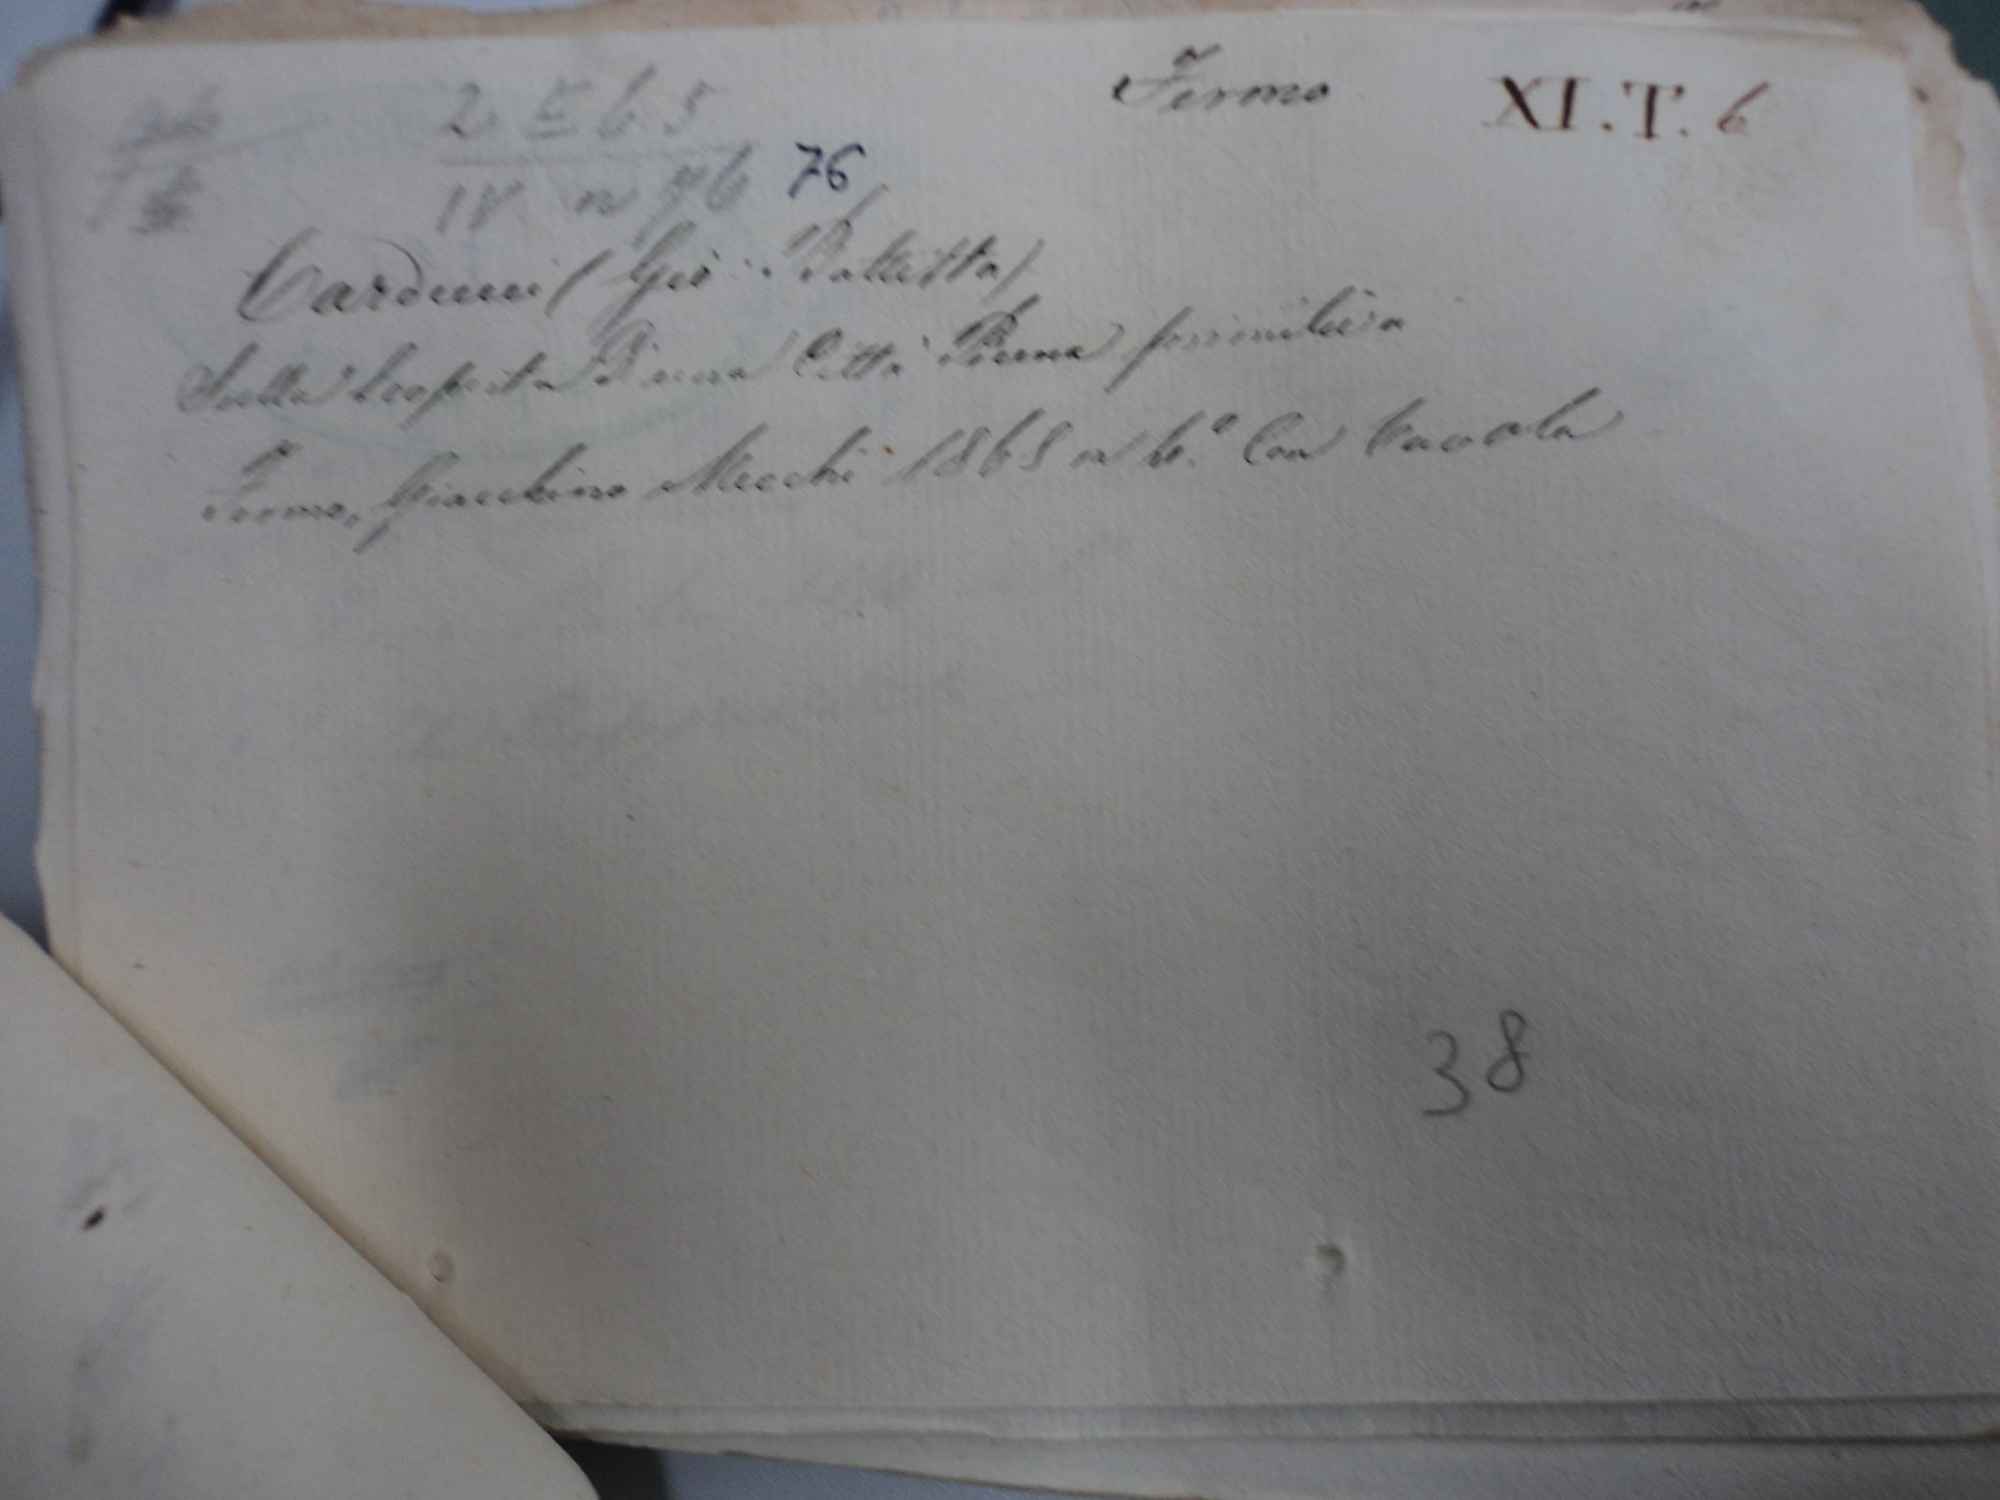 Fermo XI.T.6
2 E 65
IV n 76 76
Carducci (Gio: Battista)
Sulla Scoperta di una Città Picena primitiva
Fermo, Giacchino Mecchi 1865 in 4.° Con tavola
38